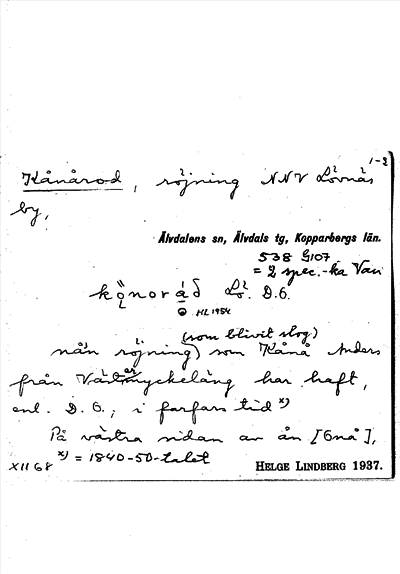 1-2
Kånårod, röjning NNV Lövnäs
by,
Älvdalens sn, Älvdals tg, Kopparbergs län.
538 G107
= 2 spec.-ka Van
Lö. D.G.
HL 1954
(som blivit slog)
nån röjning) som Kånå Anders
från Västmyckeläng har haft,
enl. D. G., i farfars tid x)
På västra sidan av ån [Gnå],
x) = 1840-50-talet
XII 68
HELGE LINDBERG 1937.